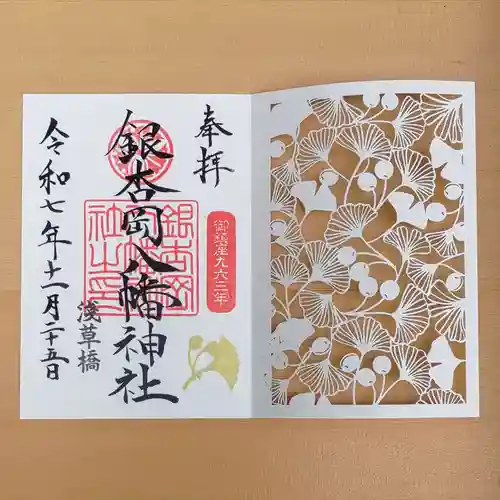 奉拝
御鎮座九六三年
銀杏岡八幡神社
淺草橋
令和七年十一月二十五日